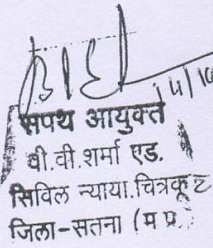 सपथ आयुक्त
वी.वी.शर्मा एड.
सिविल न्याया.चित्रकूट
जिला-सतना (म प्र.